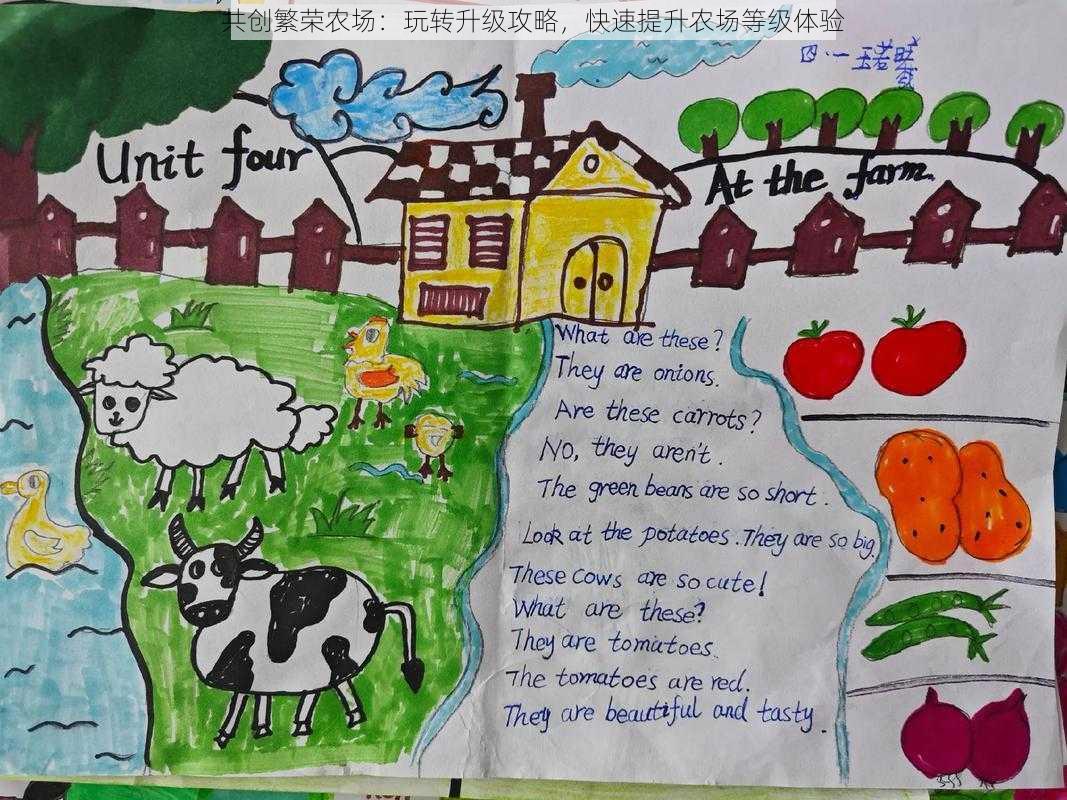 共创繁荣农场：玩转升级攻略，快速提升农场等级体验
四·一
Unit four
At the farm.
What are these?
They are onions.
Are these carrots?
No, they aren't.
The green beans are so short.
Look at the potatoes. They are so big.
These cows are so cute!
What are these?
They are tomatoes.
The tomatoes are red.
They are beautiful and tasty.